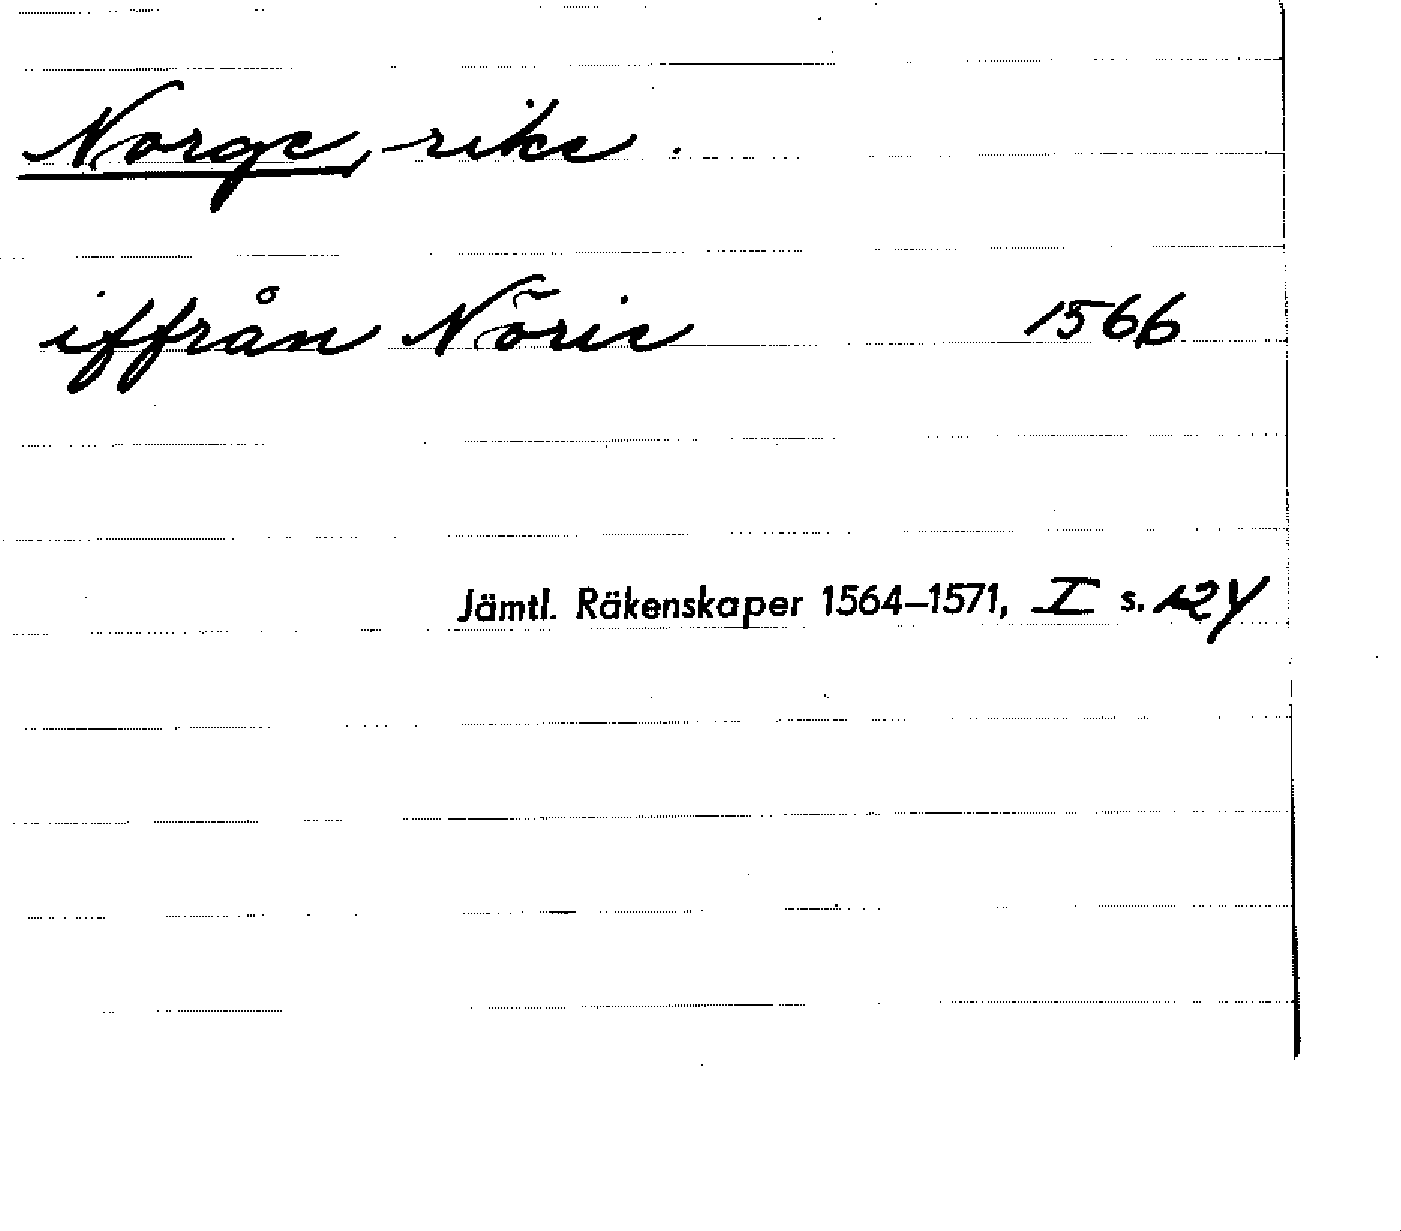 Norge, rike.
iffrån Nõrie 1566
Jämtl. Räkenskaper 1564–1571, I s. 124